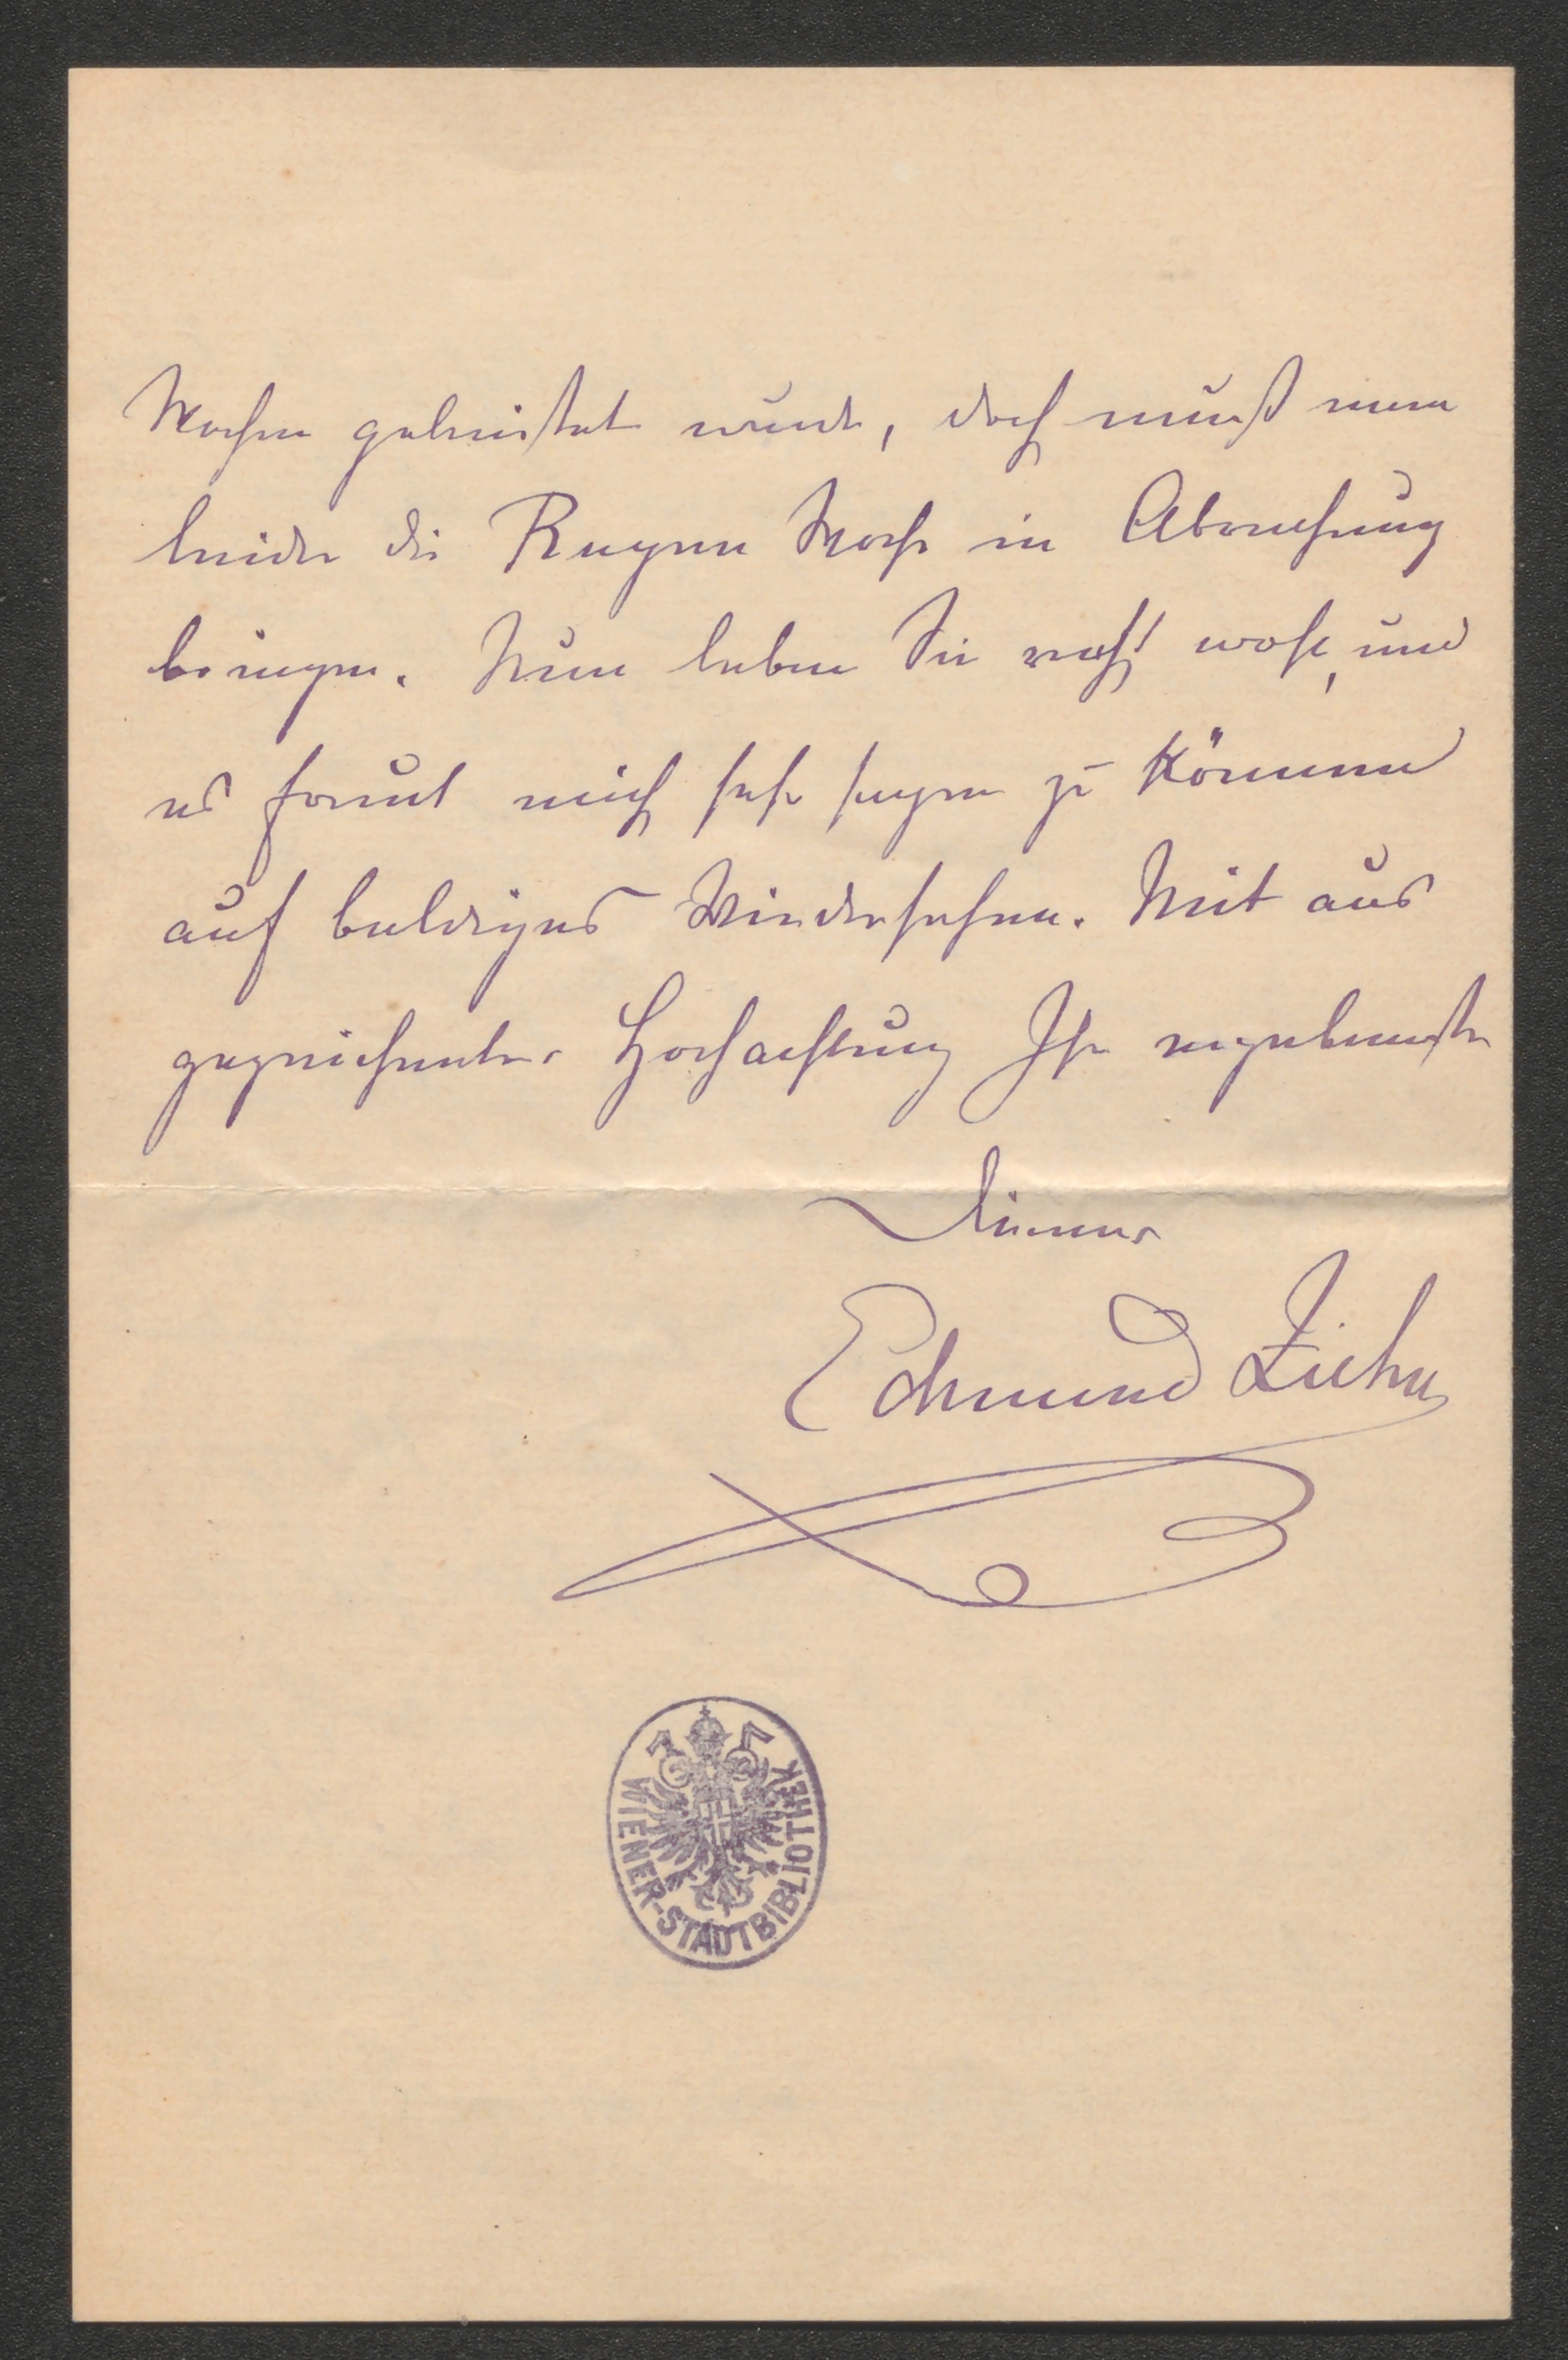 Wochen geleistet wurde, doch muß man
leider die Regen Woche in Abrechnung
bringen. Nun leben Sie recht wohl, und
es freut mich sehr sagen zu können
auf baldiges Wiedersehen. Mit aus
gezeichneter Hochachtung Ihr ergebenster
Diener
Edmund Ziehrer
WIENER-STADTBIBLIOTHEK